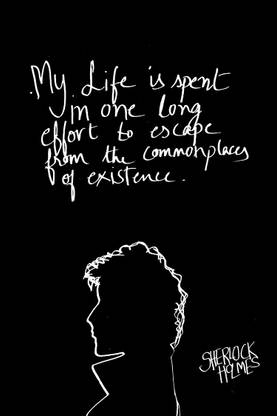 My Life is spent
in one long
effort to escape
from the commonplaces
of existence.
SHERLOCK
HOLMES